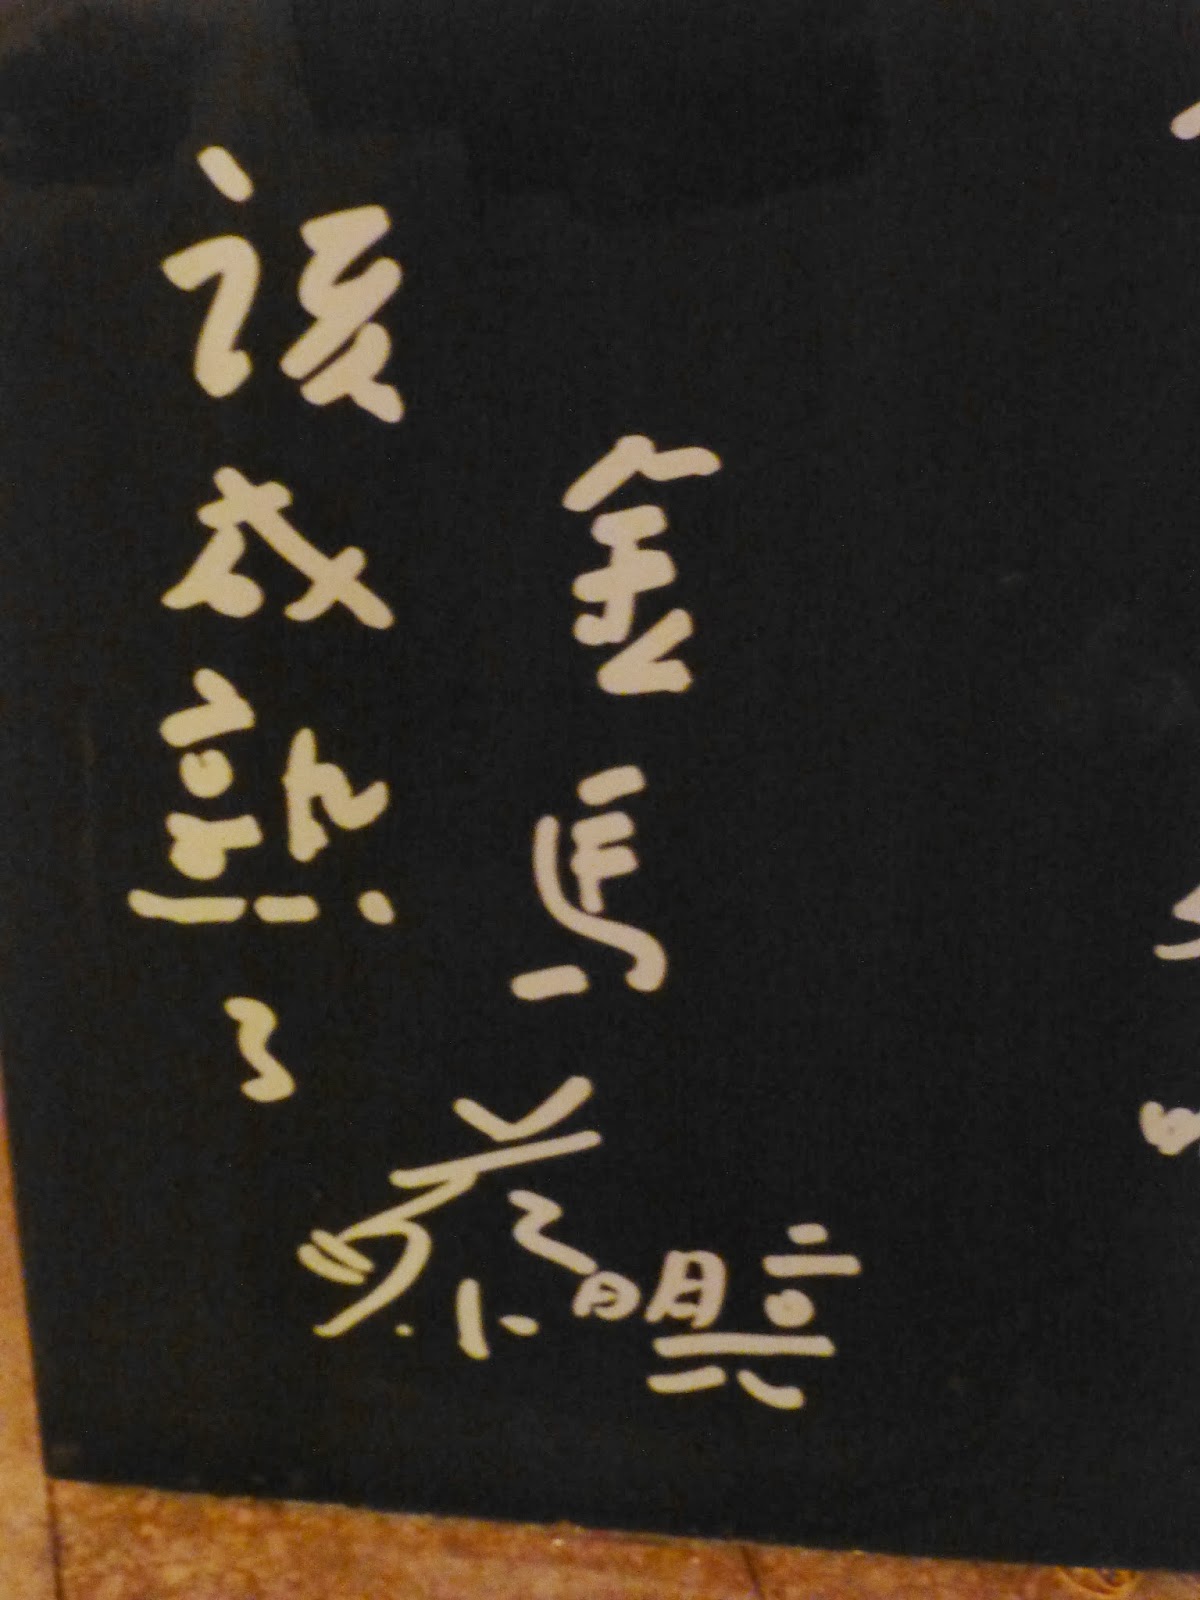 金馬
該成熟了
蔡明亮